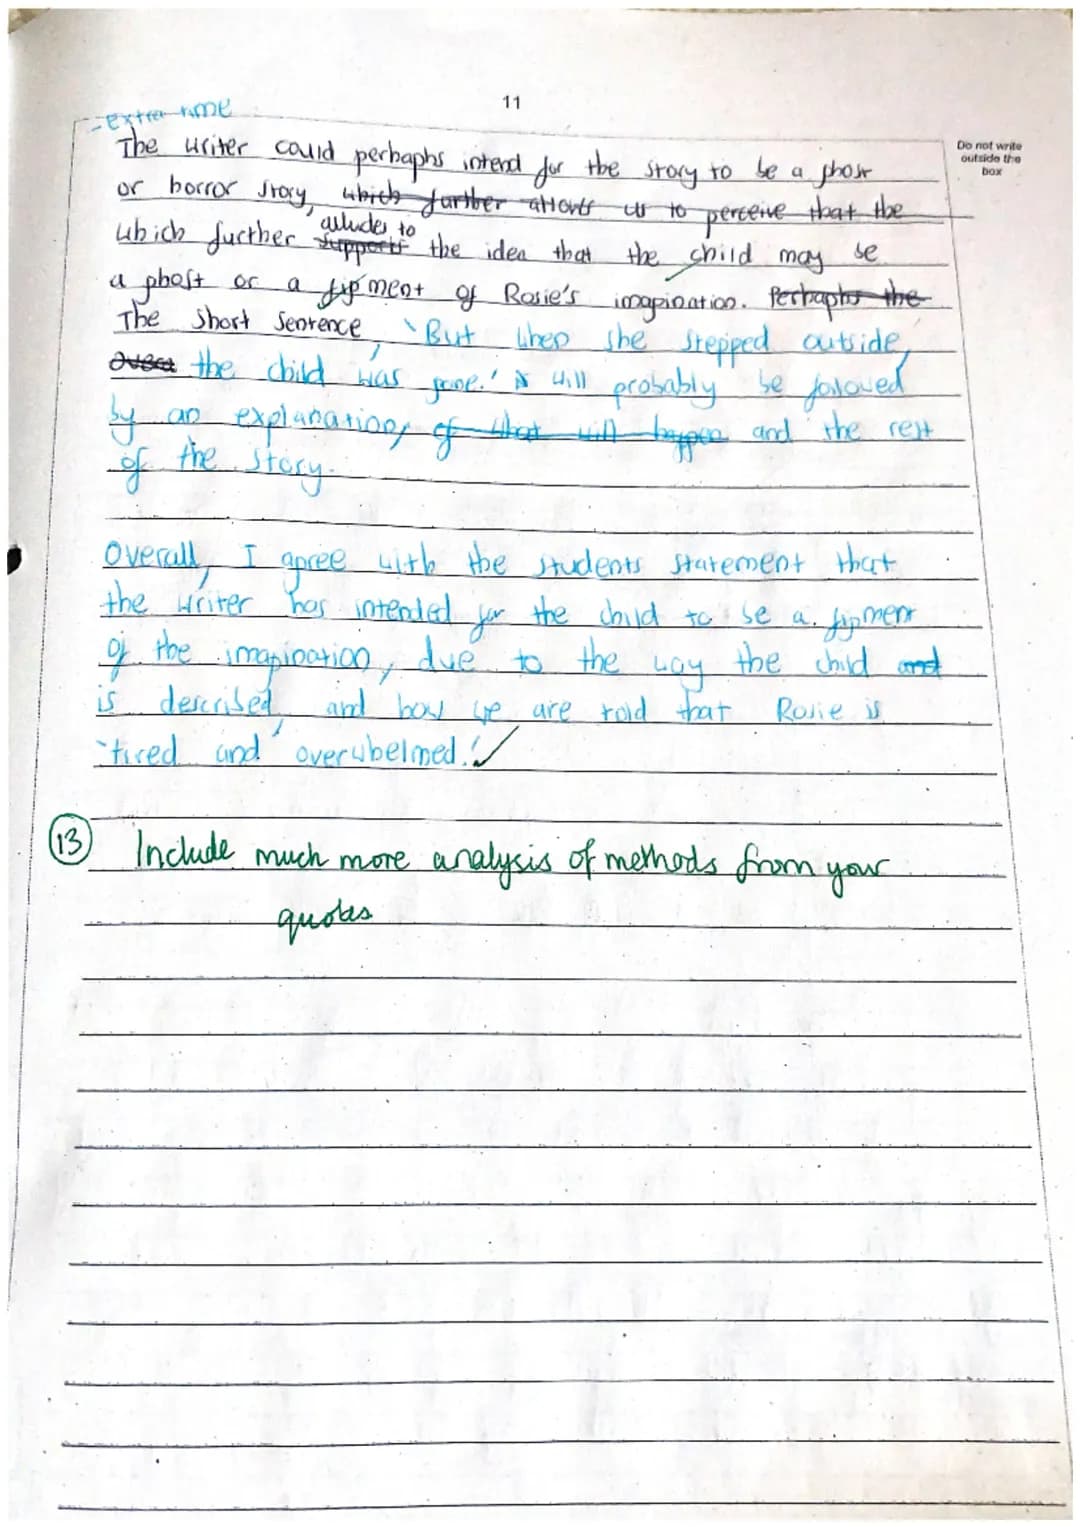 11
- extra time
Do not write
outside the
box
The writer could perhaphs intend for the story to be a ghost
or horror story, which further allows us to perceive that the
alludes to
which further supports the idea that the child may be
a ghost or a figment of Rosie's imagination. Perhaphs the
The short sentence, 'But when she stepped outside,
the child was gone.' will probably be followed
by an explanation, of what will happen and the rest
of the story.
Overall, I agree with the students statement that
the writer has intended for the child to be a figment
of the imagination, due to the way the child and
is described, and how we are told that Rosie is
'tired and overwhelmed.'
13
Include much more analysis of methods from your
quotes